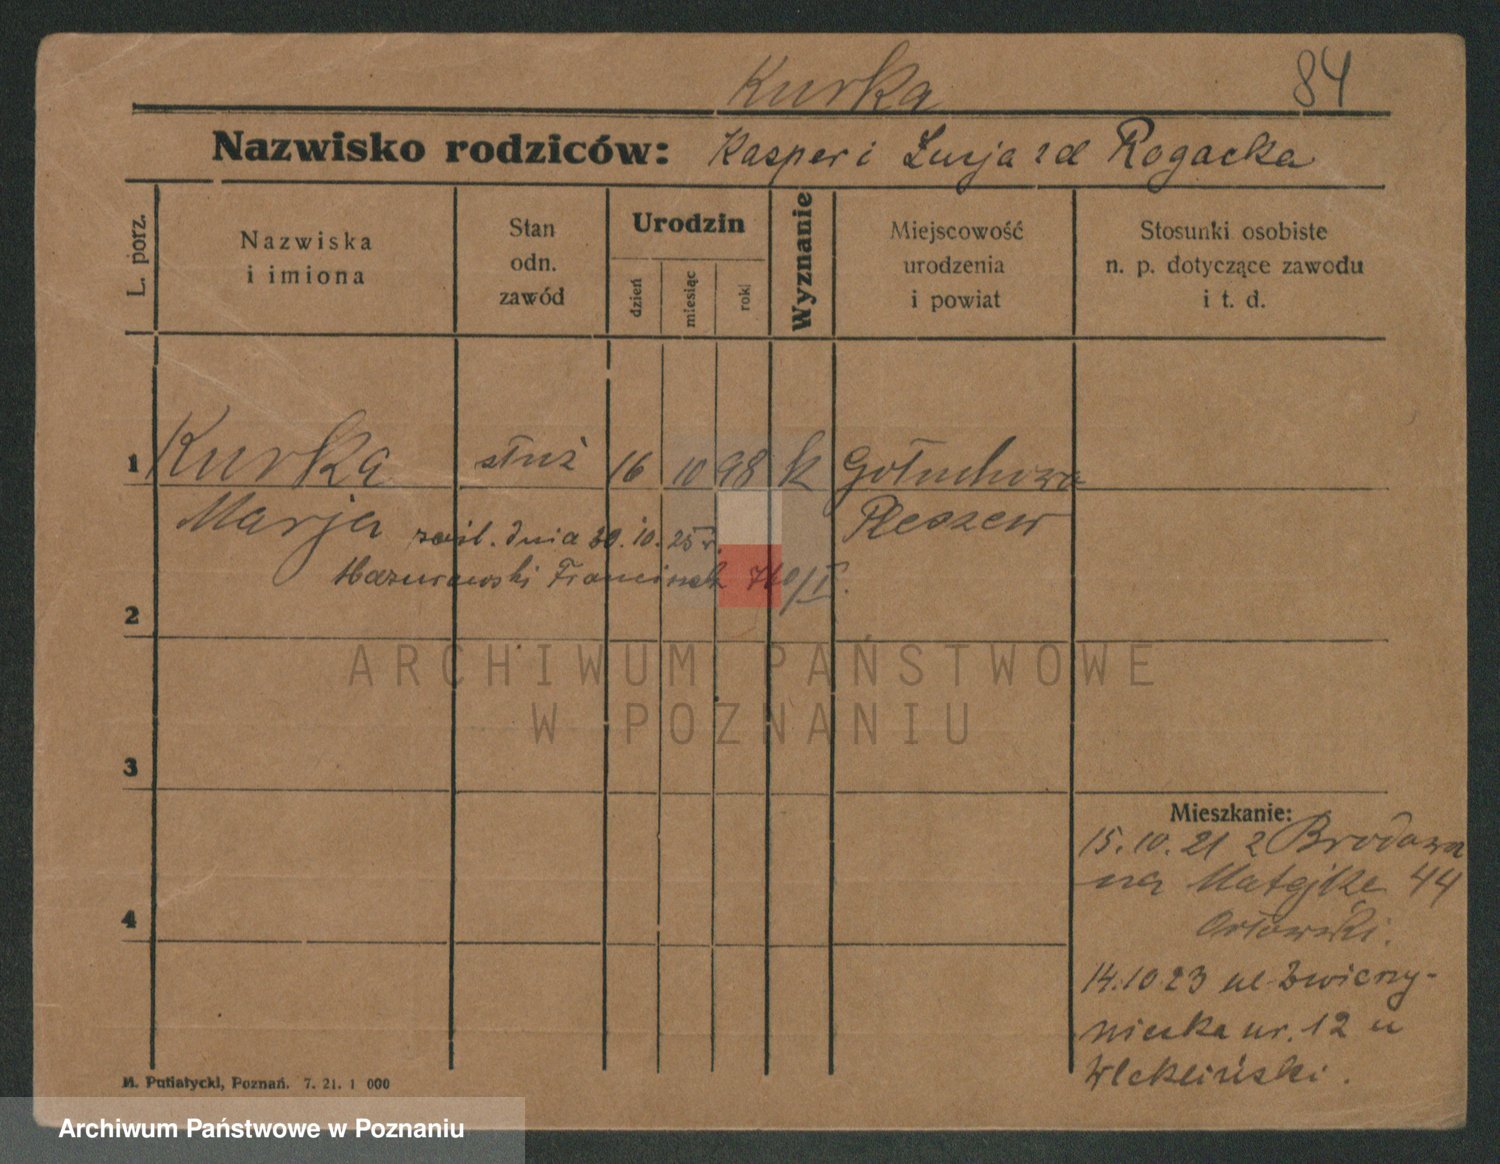 Kurka
84
Nazwisko rodziców: Kasper i Lucja zd Rogacka
L. porz.
Nazwiska
i imiona
Stan
odn.
zawód
Urodzin
dzień
miesiąc
rok
Wyznanie
Miejscowość
urodzenia
i powiat
Stosunki osobiste
n. p. dotyczące zawodu
i t. d.
1 Kurka służ 16 10 98 k Gołuchowo
Marja Pleszew
dnia 30. 10. 25 r.
Mazurowski Franciszek
2
ARCHIWUM PAŃSTWOWE
W POZNANIU
3
Mieszkanie:
15. 10. 21 z Brodowa
na Matejke 44
4
Orłowski.
14.10 23 ul Zwierzy-
niecka nr. 12 u
M. Putiatycki, Poznań. 7. 21. 1 000
Archiwum Państwowe w Poznaniu